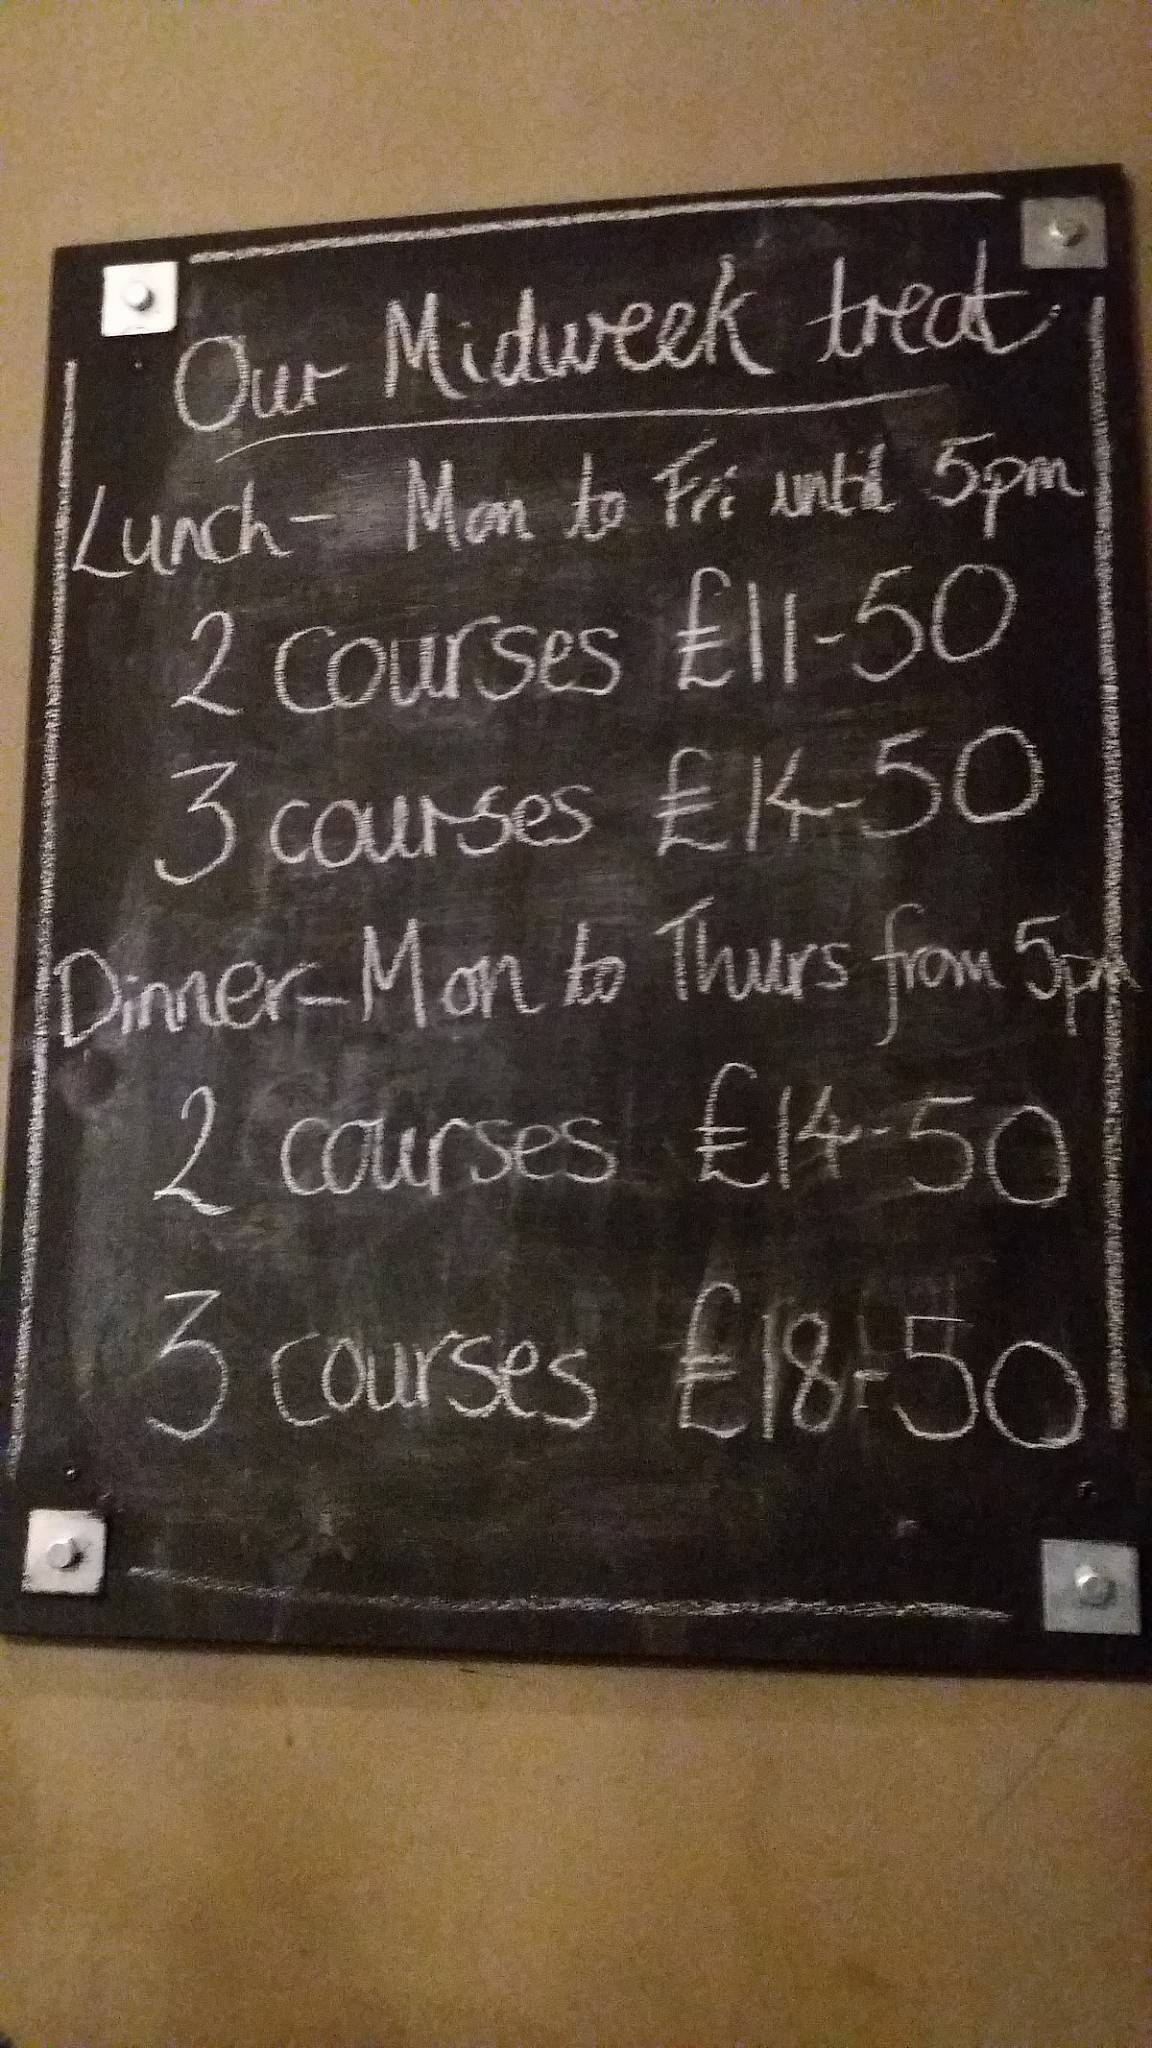 Our Midweek treat
Lunch - Mon to Fri until 5pm
2 courses £11-50
3 courses £14-50
Dinner - Mon to Thurs from 5pm
2 courses £14-50
3 courses £18-50